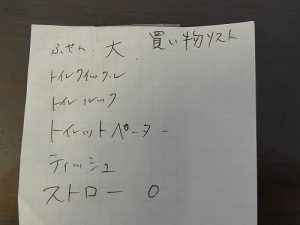 買い物リスト
ふせん 大
トイレクイックル
トイレルック
トイレットペーパー
ティッシュ
ストロー 0